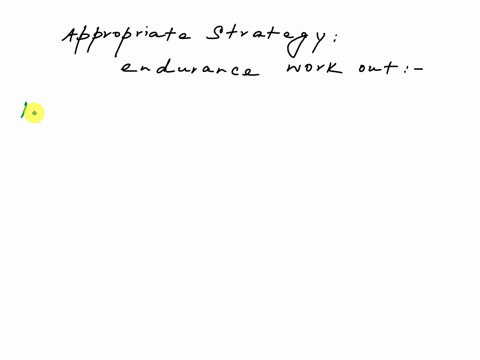 Appropriate Strategy:
endurance work out:-